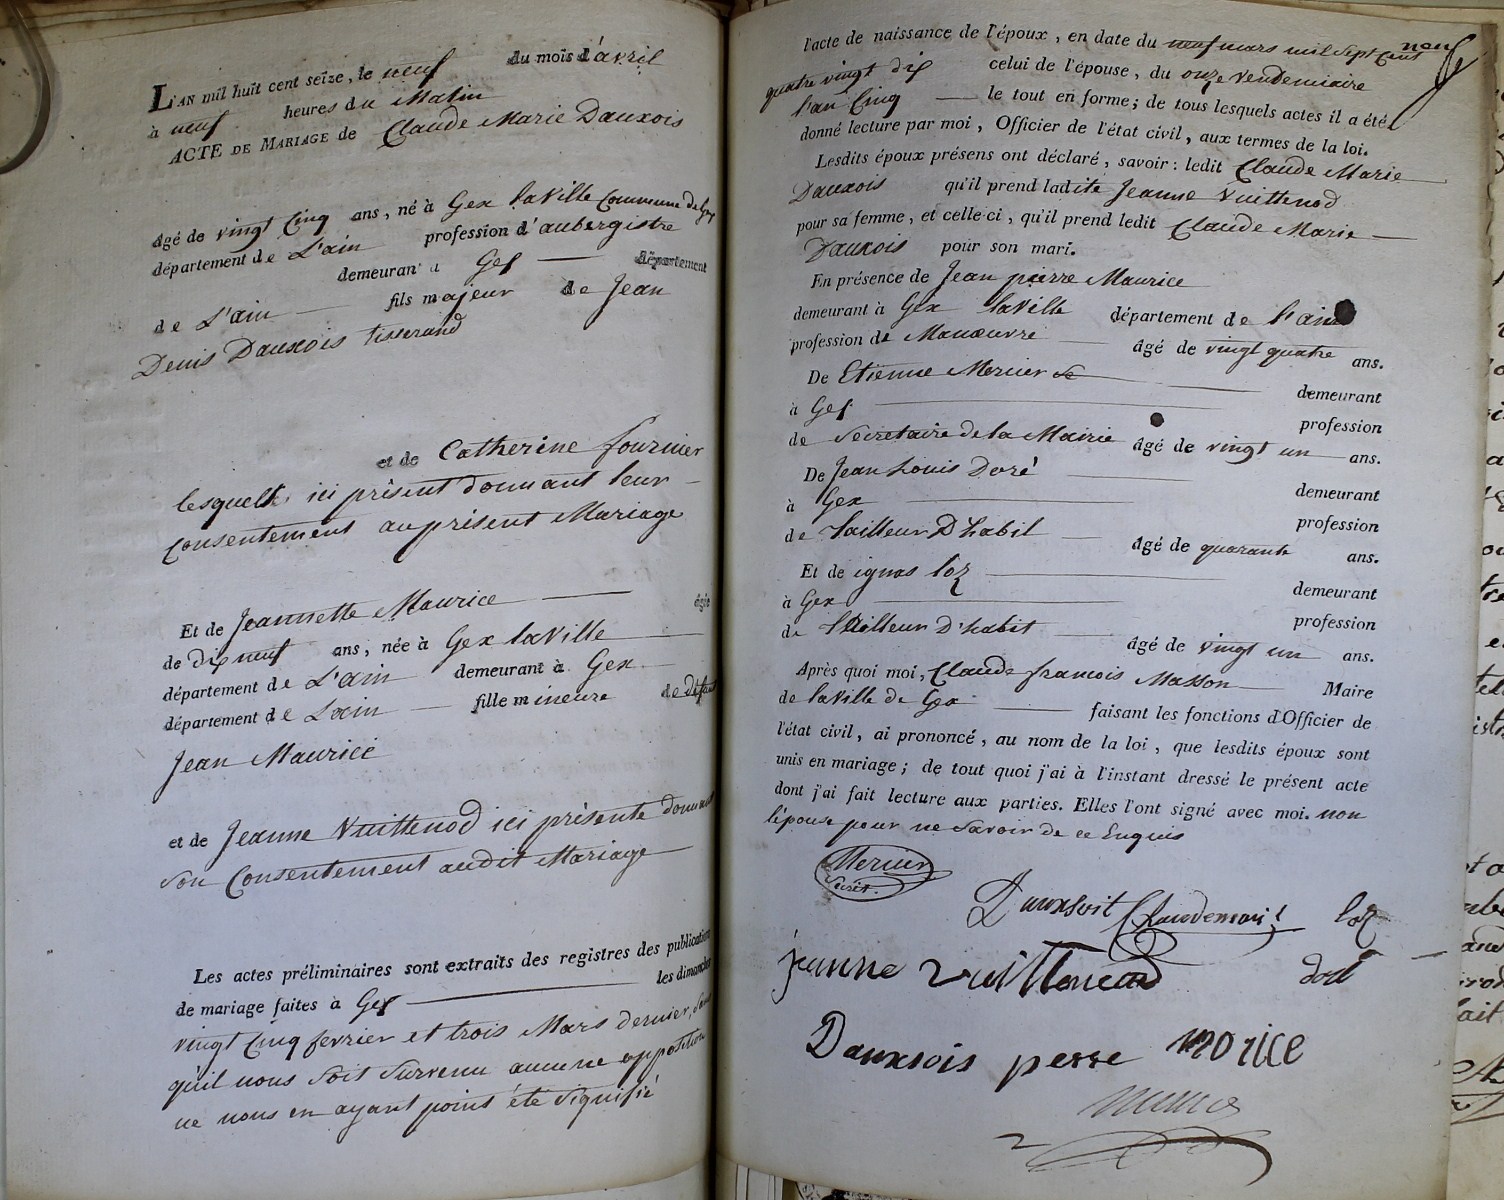 L'AN mil huit cent seize, le neuf du mois d'avril
à neuf heures du Matin
ACTE DE MARIAGE de Claude Marie Dauxois
âgé de vingt Cinq ans, né à Gex laVille Commune de Gex
département de L'ain profession d'aubergistre
demeurant à Gex département
de L'ain fils majeur de Jean
Denis Dauxois tisserand
et de Catherine fournier
lesquels ici présent donnant leur
Consentement au présent Mariage
Et de Jeannette Maurice âgée
de dix neuf ans, née à Gex laVille
département de L'ain demeurant à Gex
département de Lain fille mineure de défunt
Jean Maurice
et de Jeanne Vuittenod ici présente donnant
son Consentement audit Mariage
Les actes préliminaires sont extraits des registres des publications
de mariage faites à Gex les dimanches
vingt Cinq fevrier et trois Mars dernier, sans
qu'il nous soit survenu aucune opposition
ne nous en ayant point été signifié
l'acte de naissance de l'époux, en date du neuf mars mil sept cent neuf
quatre vingt dix celui de l'épouse, du onze Vendemiaire
l'an Cinq le tout en forme; de tous lesquels actes il a été
donné lecture par moi, Officier de l'état civil, aux termes de la loi.
Lesdits époux présens ont déclaré, savoir: ledit Claude Marie
Dauxois qu'il prend ladite Jeanne Vuittenod
pour sa femme, et celle-ci, qu'il prend ledit Claude Marie
Dauxois pour son mari.
En présence de Jean pierre Maurice
demeurant à Gex laVille département de l'ain
profession de Manœuvre âgé de vingt quatre ans.
De Etienne Mercier demeurant
à Gex profession
de Secretaire de la Mairie âgé de vingt un ans.
De Jean Louis Doré demeurant
à Gex profession
de tailleur D'habit âgé de quarante ans.
Et de ignas loz demeurant
à Gex profession
de tailleur D'habit âgé de vingt un ans.
Après quoi moi, Claude francois Masson Maire
de laVille de Gex faisant les fonctions d'Officier de
l'état civil, ai prononcé, au nom de la loi, que lesdits époux sont
unis en mariage; de tout quoi j'ai à l'instant dressé le présent acte
dont j'ai fait lecture aux parties. Elles l'ont signé avec moi. non
l'épouse pour ne savoir de ce Enquis
Mercier
Secrét.
Dauxsoit Claudemari loz
jeanne vuittenead
Dauxsois perre morice